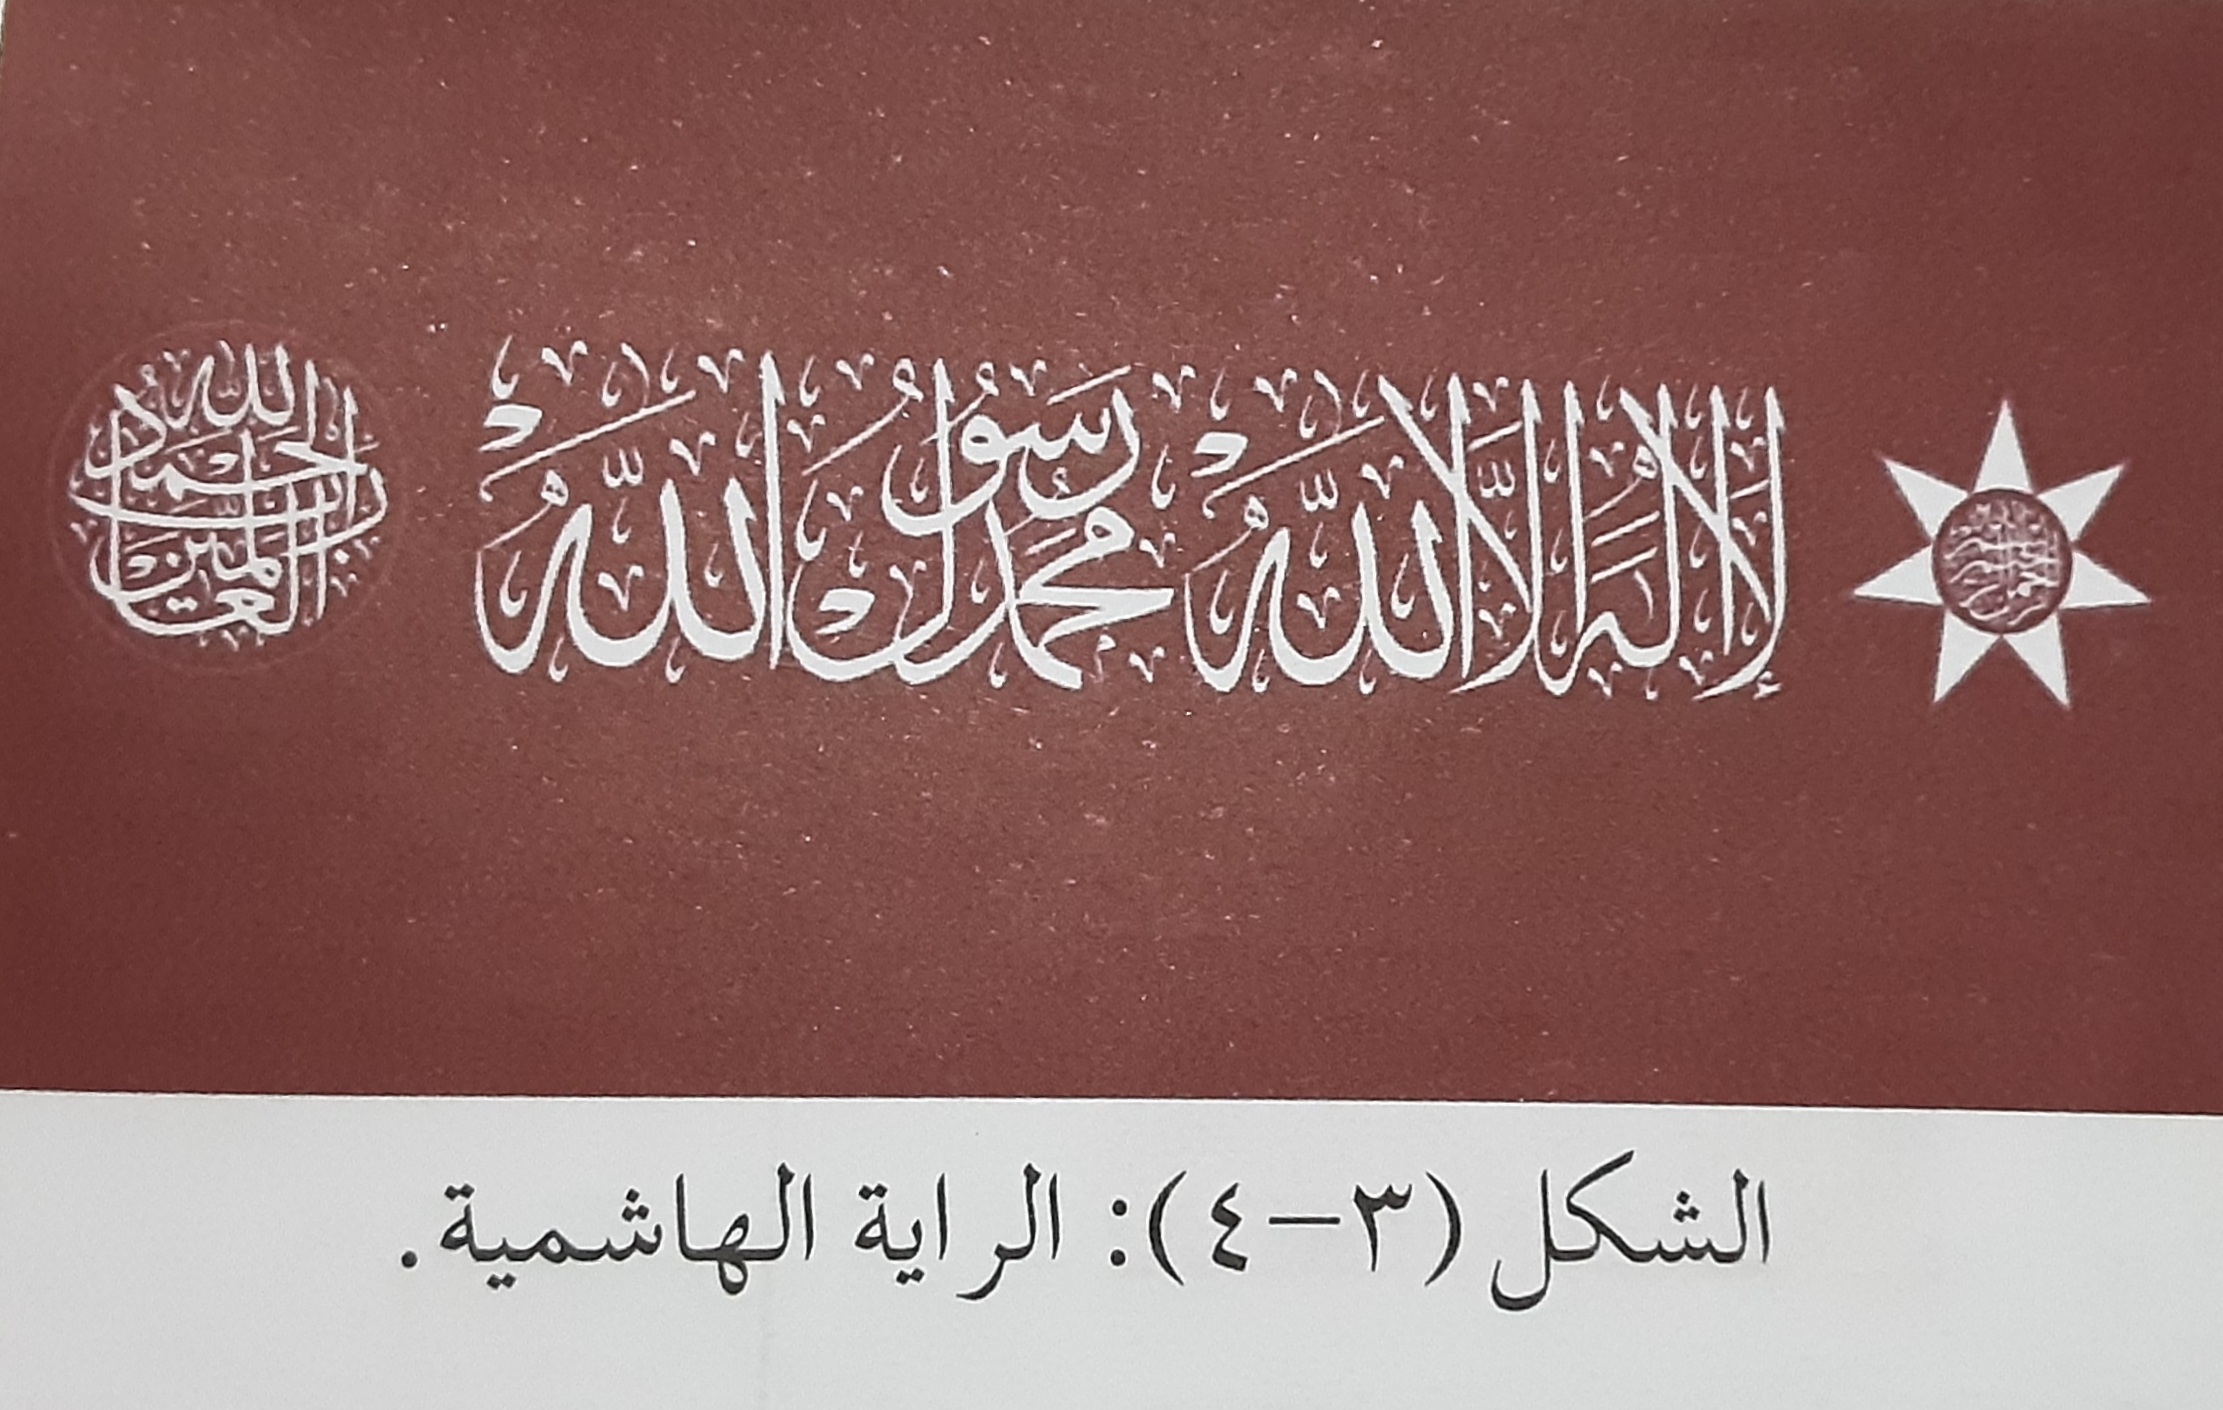 بسم الله الرحمن الرحيم
لا إله إلا الله محمد رسول الله
الحمد لله رب العالمين
الشكل (٣-٤): الراية الهاشمية.